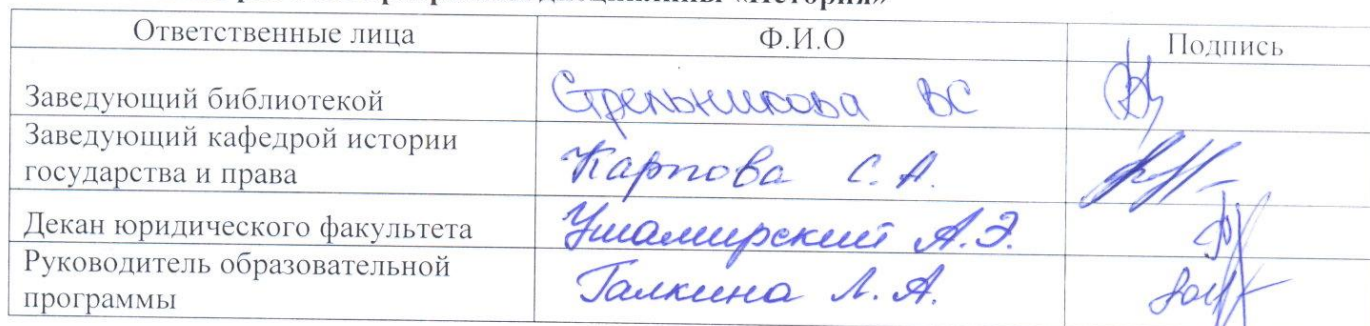 дисциплины «История»
Ответственные лица Ф.И.О Подпись
Заведующий библиотекой Стрельникова ВС
Заведующий кафедрой истории
государства и права Карпова С.А.
Декан юридического факультета А.Э.
Руководитель образовательной
программы Галкина Л.А.